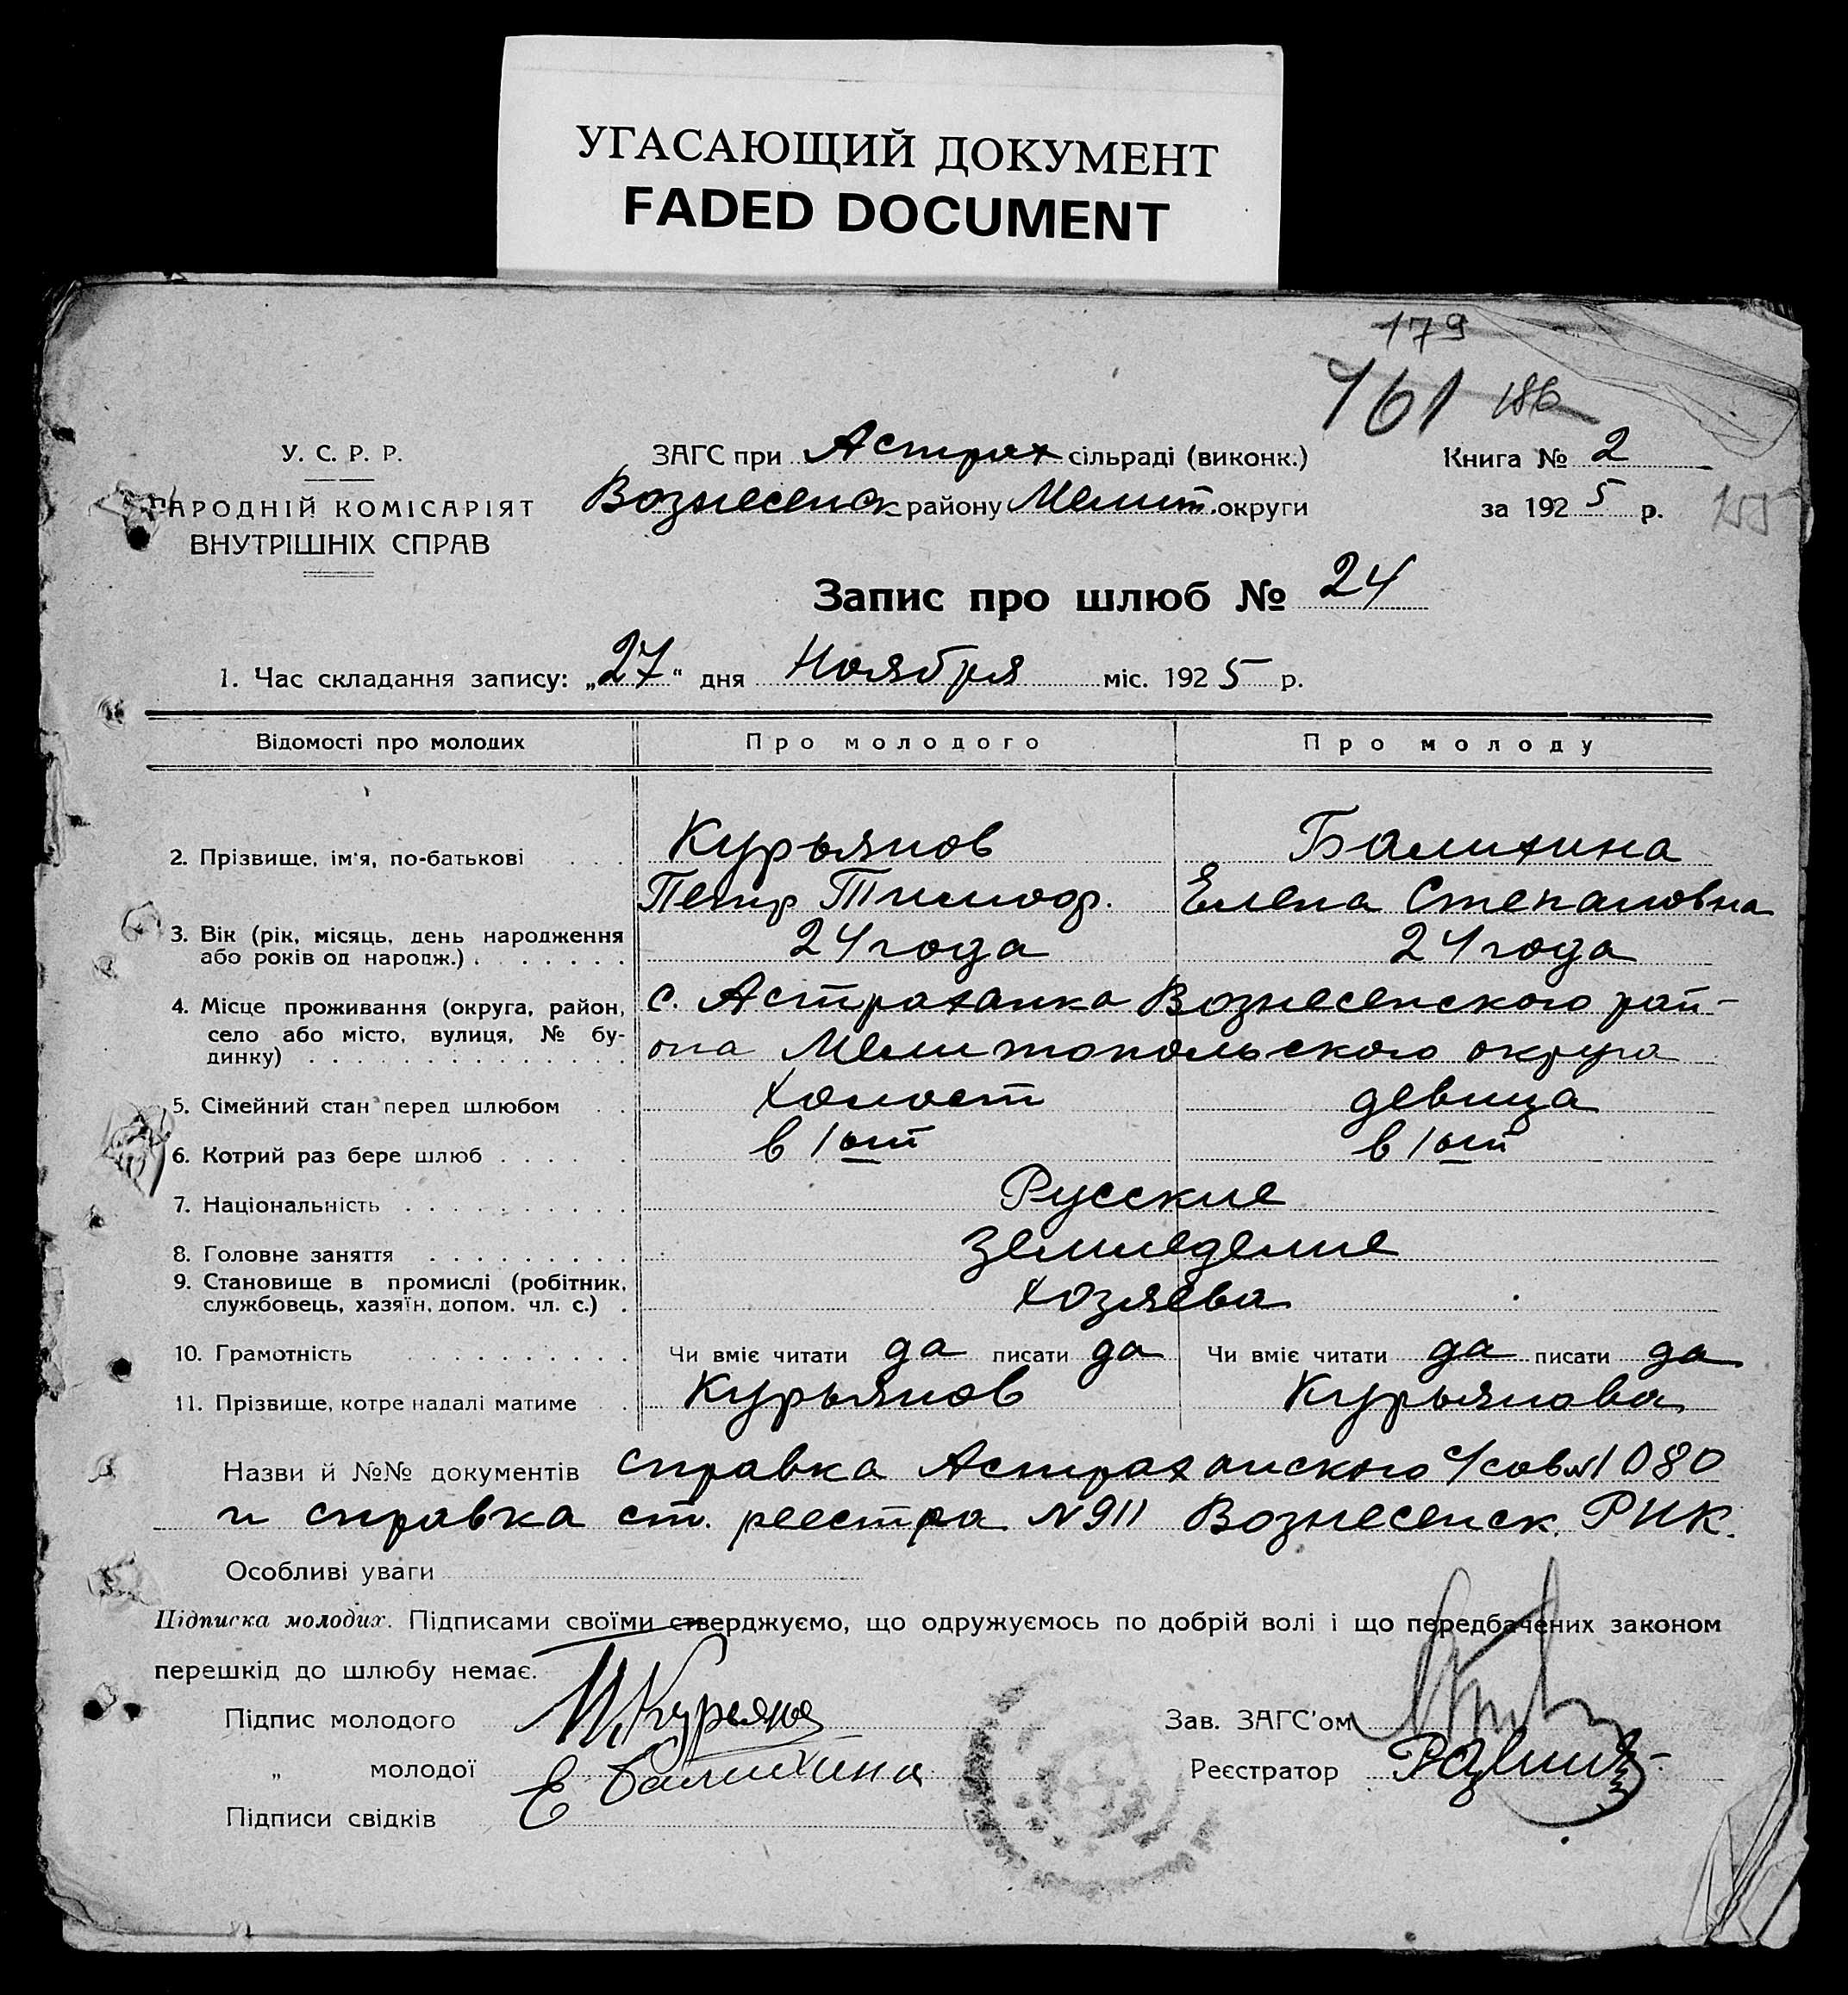 УГАСАЮЩИЙ ДОКУМЕНТ
FADED DOCUMENT
179
161 186
У. С. Р. Р.
НАРОДНІЙ КОМІСАРІЯТ
ВНУТРІШНІХ СПРАВ
ЗАГС при Астрах сільраді (виконк.)
Вознесенск району Мелит. округи
Книга № 2
за 1925 р.
155
Запис про шлюб № 24
1. Час складання запису: „27“ дня Ноября міс. 1925 р.
Відомості про молодих Про молодого Про молоду
2. Прізвище, ім'я, по-батькові Курьянов Балихина
Петр Тимоф. Елена Степановна
3. Вік (рік, місяць, день народження
або років од народж.) 24 года 24 года
4. Місце проживання (округа, район, с. Астраханка Вознесенского рай-
село або місто, вулиця, № бу-
динку) она Мелитопольского округа
5. Сімейний стан перед шлюбом холост девица
6. Котрий раз бере шлюб в 1ый в 1ый
7. Національність Русские
8. Головне заняття Земледелие
9. Становище в промислі (робітник,
службовець, хазяїн, допом. чл. с.) хозяева
10. Грамотність Чи вміє читати да писати да Чи вміє читати да писати да
11. Прізвище, котре надалі матиме Курьянов Курьянова
Назви й №№ документів справка Астраханского с/сов №1080
и справка ст. реестра №911 Вознесенск. РИК.
Особливі уваги
Підписка молодих. Підписами своїми стверджуємо, що одружуємось по добрій волі і що передбачених законом
перешкід до шлюбу немає.
Підпис молодого П. Курьянов
Зав. ЗАГС'ом
„ молодої Е Балихина
Реєстратор
Підписи свідків